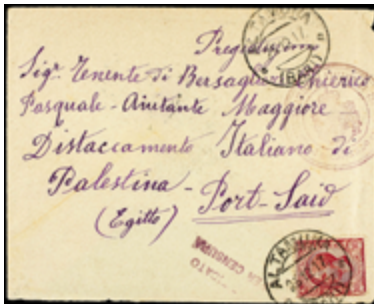 Pregiatissimo
Sigr. Tenente di Bersaglieri Chierico
Pasquale - Aiutante Maggiore
Distaccamento Italiano di
Palestina - Port-Said
(Egitto)
(BARI)
CENSURA
ALTAMURA